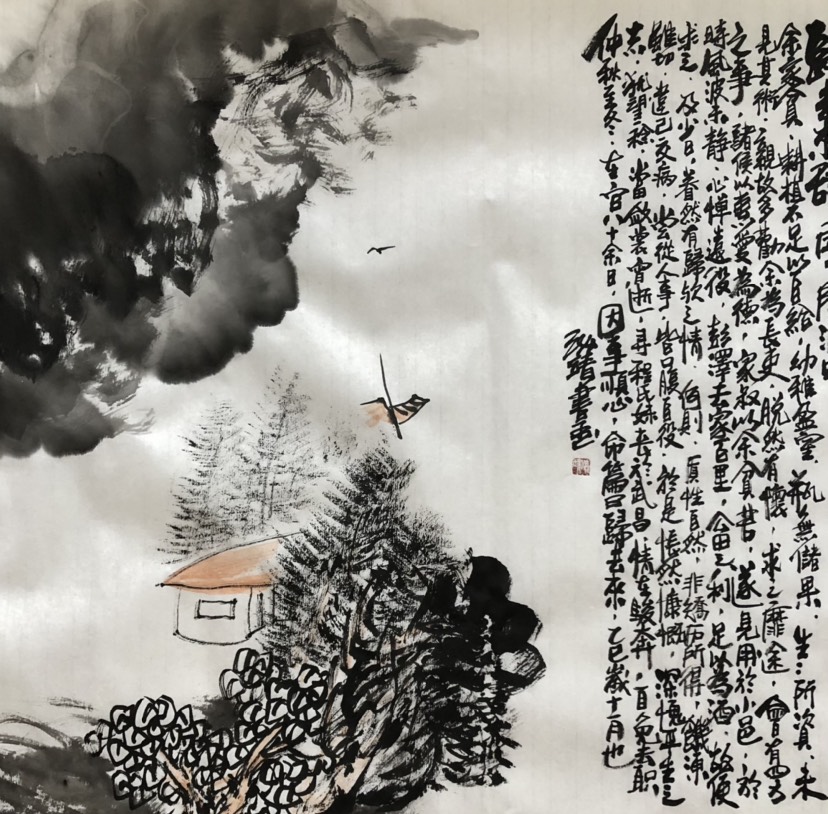 余家貧，耕植不足以自給，幼稚盈室，瓶無儲粟，生〻所資，未
見其術，親故多勸余為長吏，脫然有懷，求之靡途，會有四方
之事，諸侯以惠愛為德，家叔以余貧苦，遂見用於小邑，於
時風波未靜，心憚遠役，彭澤去家百里，公田之利，足以為酒，故便
求之，及少日，眷然有歸歟之情，何則，質性自然，非矯厲所得，饑凍
雖切，違己交病，嘗從人事，皆口腹自役，於是悵然慷慨，深愧平生之
志，猶望稔，當斂裳宵逝，尋程氏妹喪於武昌，情在駿奔，自免去職
仲秋至冬，在官八十余日，因事順心，命篇曰歸去來，乙巳歲十一月也
靖書